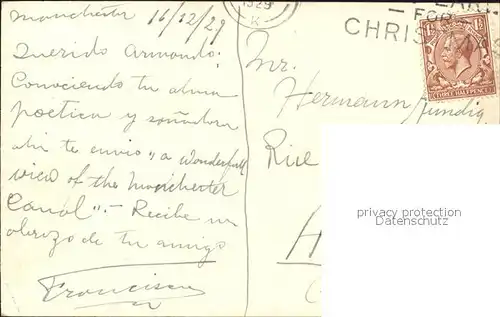 Manchester 16/12/29
Querido Armando:
Conociendo tu alma
poetica y soñadora
ahi te envio "a wonderfull
view of the Manchester
Canal".- Recibe un
abrazo de tu amigo
Francisco
1929
K
FOR
CHRIS
THREE HALFPENCE
Mr.
Hermann
Rue
privacy protection
Datenschutz
H